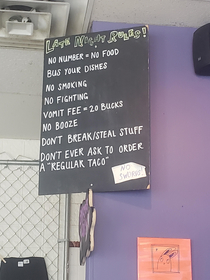 LATE NIGHT RULES!
NO NUMBER = NO FOOD
BUS YOUR DISHES
NO SMOKING
NO FIGHTING
VOMIT FEE = 20 BUCKS
NO BOOZE
DON'T BREAK/STEAL STUFF
DON'T EVER ASK TO ORDER
A "REGULAR TACO"
NO